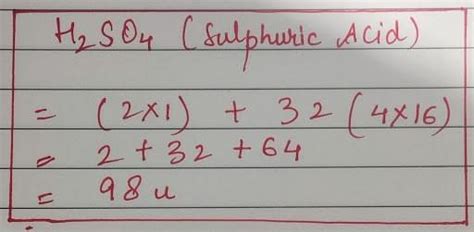 H₂SO₄ (Sulphuric Acid)
= (2×1) + 32 (4×16)
= 2 + 32 + 64
= 98 u